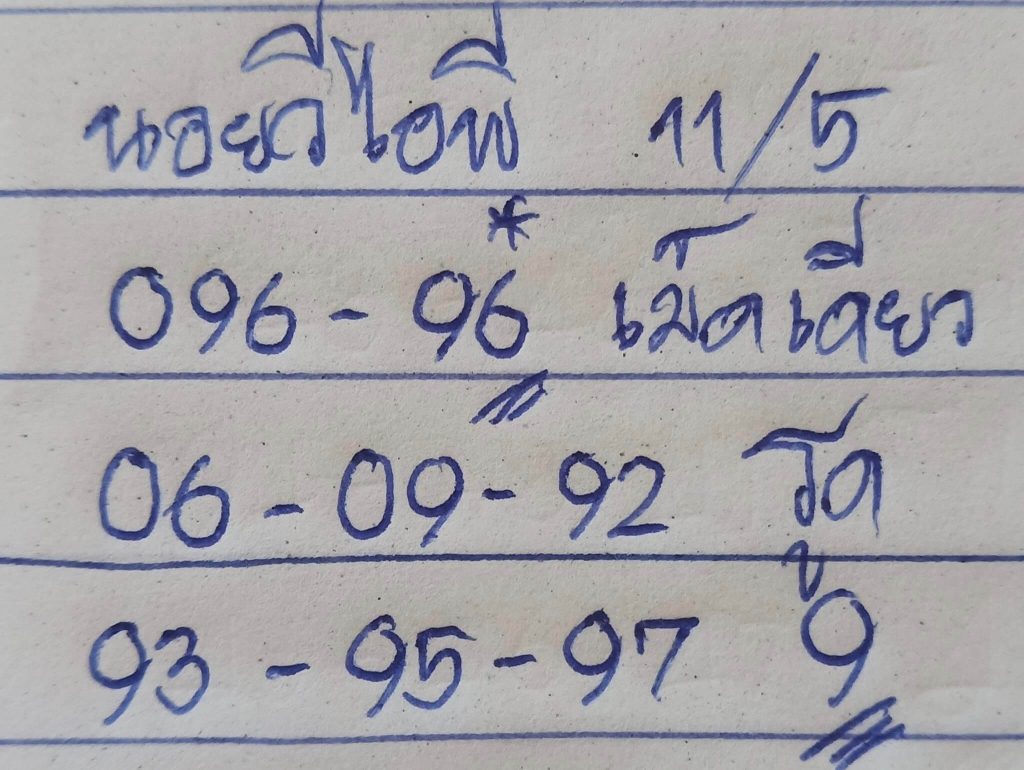 นอยวีไอพี 11/5
096 - 96* เม็ดเดียว
06 - 09 - 92 รูด
93 - 95 - 97 9